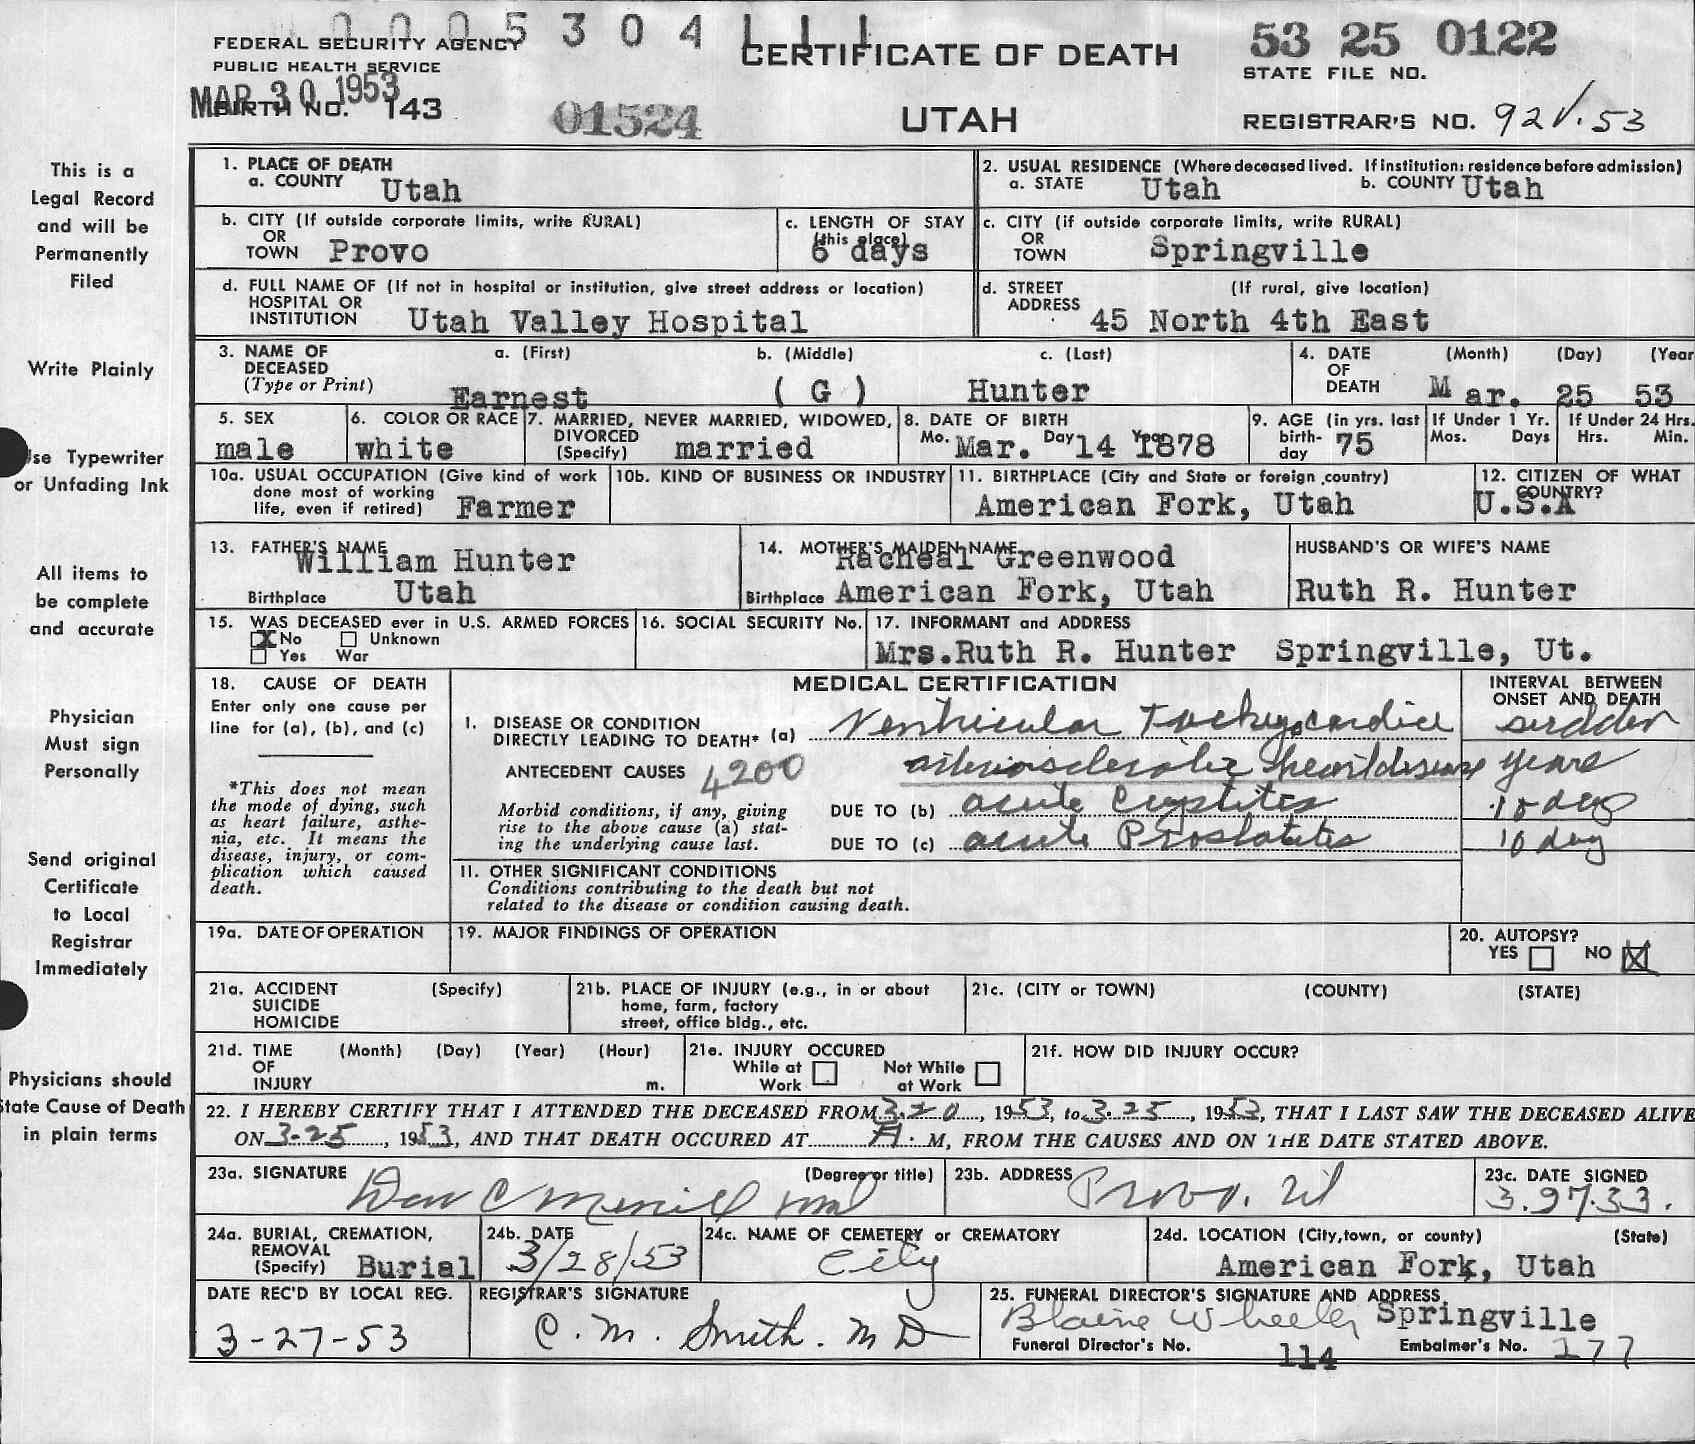 0005304111
FEDERAL SECURITY AGENCY
PUBLIC HEALTH SERVICE
MAR 30 1953
BIRTH NO. 143
01524
CERTIFICATE OF DEATH
UTAH
53 25 0122
STATE FILE NO.
REGISTRAR'S NO. 92 V. 53
This is a
Legal Record
and will be
Permanently
Filed
Write Plainly
Use Typewriter
or Unfading Ink
All items to
be complete
and accurate
Physician
Must sign
Personally
Send original
Certificate
to Local
Registrar
Immediately
Physicians should
State Cause of Death
in plain terms
1. PLACE OF DEATH
a. COUNTY Utah
2. USUAL RESIDENCE (Where deceased lived. If institution: residence before admission)
a. STATE Utah b. COUNTY Utah
b. CITY (If outside corporate limits, write RURAL)
OR
TOWN Provo
c. LENGTH OF STAY
(this place)
6 days
c. CITY (if outside corporate limits, write RURAL)
OR
TOWN Springville
d. FULL NAME OF (If not in hospital or institution, give street address or location)
HOSPITAL OR
INSTITUTION Utah Valley Hospital
d. STREET (If rural, give location)
ADDRESS 45 North 4th East
3. NAME OF DECEASED a. (First) b. (Middle) c. (Last)
(Type or Print) Earnest ( G ) Hunter
4. DATE OF DEATH (Month) (Day) (Year
Mar. 25 53
5. SEX
male
6. COLOR OR RACE
white
7. MARRIED, NEVER MARRIED, WIDOWED,
DIVORCED
(Specify) married
8. DATE OF BIRTH
Mo. Mar. Day 14 Yr. 1878
9. AGE (in yrs. last
birth-
day 75
If Under 1 Yr.
Mos. Days
If Under 24 Hrs.
Hrs. Min.
10a. USUAL OCCUPATION (Give kind of work
done most of working
life, even if retired) Farmer
10b. KIND OF BUSINESS OR INDUSTRY
11. BIRTHPLACE (City and State or foreign country)
American Fork, Utah
12. CITIZEN OF WHAT
COUNTRY?
U.S.A
13. FATHER'S NAME
William Hunter
Birthplace Utah
14. MOTHER'S MAIDEN NAME
Racheal Greenwood
Birthplace American Fork, Utah
HUSBAND'S OR WIFE'S NAME
Ruth R. Hunter
15. WAS DECEASED ever in U.S. ARMED FORCES
X No Unknown
Yes War
16. SOCIAL SECURITY No.
17. INFORMANT and ADDRESS
Mrs.Ruth R. Hunter Springville, Ut.
18. CAUSE OF DEATH
Enter only one cause per
line for (a), (b), and (c)
*This does not mean
the mode of dying, such
as heart failure, asthe-
nia, etc. It means the
disease, injury, or com-
plication which caused
death.
MEDICAL CERTIFICATION
INTERVAL BETWEEN
ONSET AND DEATH
I. DISEASE OR CONDITION
DIRECTLY LEADING TO DEATH* (a) Ventricular Tachycardia sudden
ANTECEDENT CAUSES 4200 arteriosclerotic heart disease years
Morbid conditions, if any, giving
rise to the above cause (a) stat-
ing the underlying cause last.
DUE TO (b) acute Cystitis 10 days
DUE TO (c) acute Prostatitis 10 day
11. OTHER SIGNIFICANT CONDITIONS
Conditions contributing to the death but not
related to the disease or condition causing death.
19a. DATE OF OPERATION
19. MAJOR FINDINGS OF OPERATION
20. AUTOPSY?
YES NO X
21a. ACCIDENT (Specify)
SUICIDE
HOMICIDE
21b. PLACE OF INJURY (e.g., in or about
home, farm, factory
street, office bldg., etc.
21c. (CITY or TOWN) (COUNTY) (STATE)
21d. TIME (Month) (Day) (Year) (Hour)
OF
INJURY m.
21e. INJURY OCCURED
While at Work
Not While at Work
21f. HOW DID INJURY OCCUR?
22. I HEREBY CERTIFY THAT I ATTENDED THE DECEASED FROM 3-20, 1953, to 3-25, 1953, THAT I LAST SAW THE DECEASED ALIVE
ON 3-25, 1953, AND THAT DEATH OCCURED AT A. M, FROM THE CAUSES AND ON THE DATE STATED ABOVE.
23a. SIGNATURE (Degree or title)
Don C Merrill MD
23b. ADDRESS
Provo. Ut
23c. DATE SIGNED
24a. BURIAL, CREMATION,
REMOVAL
(Specify) Burial
24b. DATE
3/28/53
24c. NAME OF CEMETERY or CREMATORY
City
24d. LOCATION (City, town, or county) (State)
American Fork, Utah
DATE REC'D BY LOCAL REG.
3-27-53
REGISTRAR'S SIGNATURE
C. M. Smith. M D
25. FUNERAL DIRECTOR'S SIGNATURE AND ADDRESS
Blaine Wheeler Springville
Funeral Director's No. 114 Embalmer's No. 177